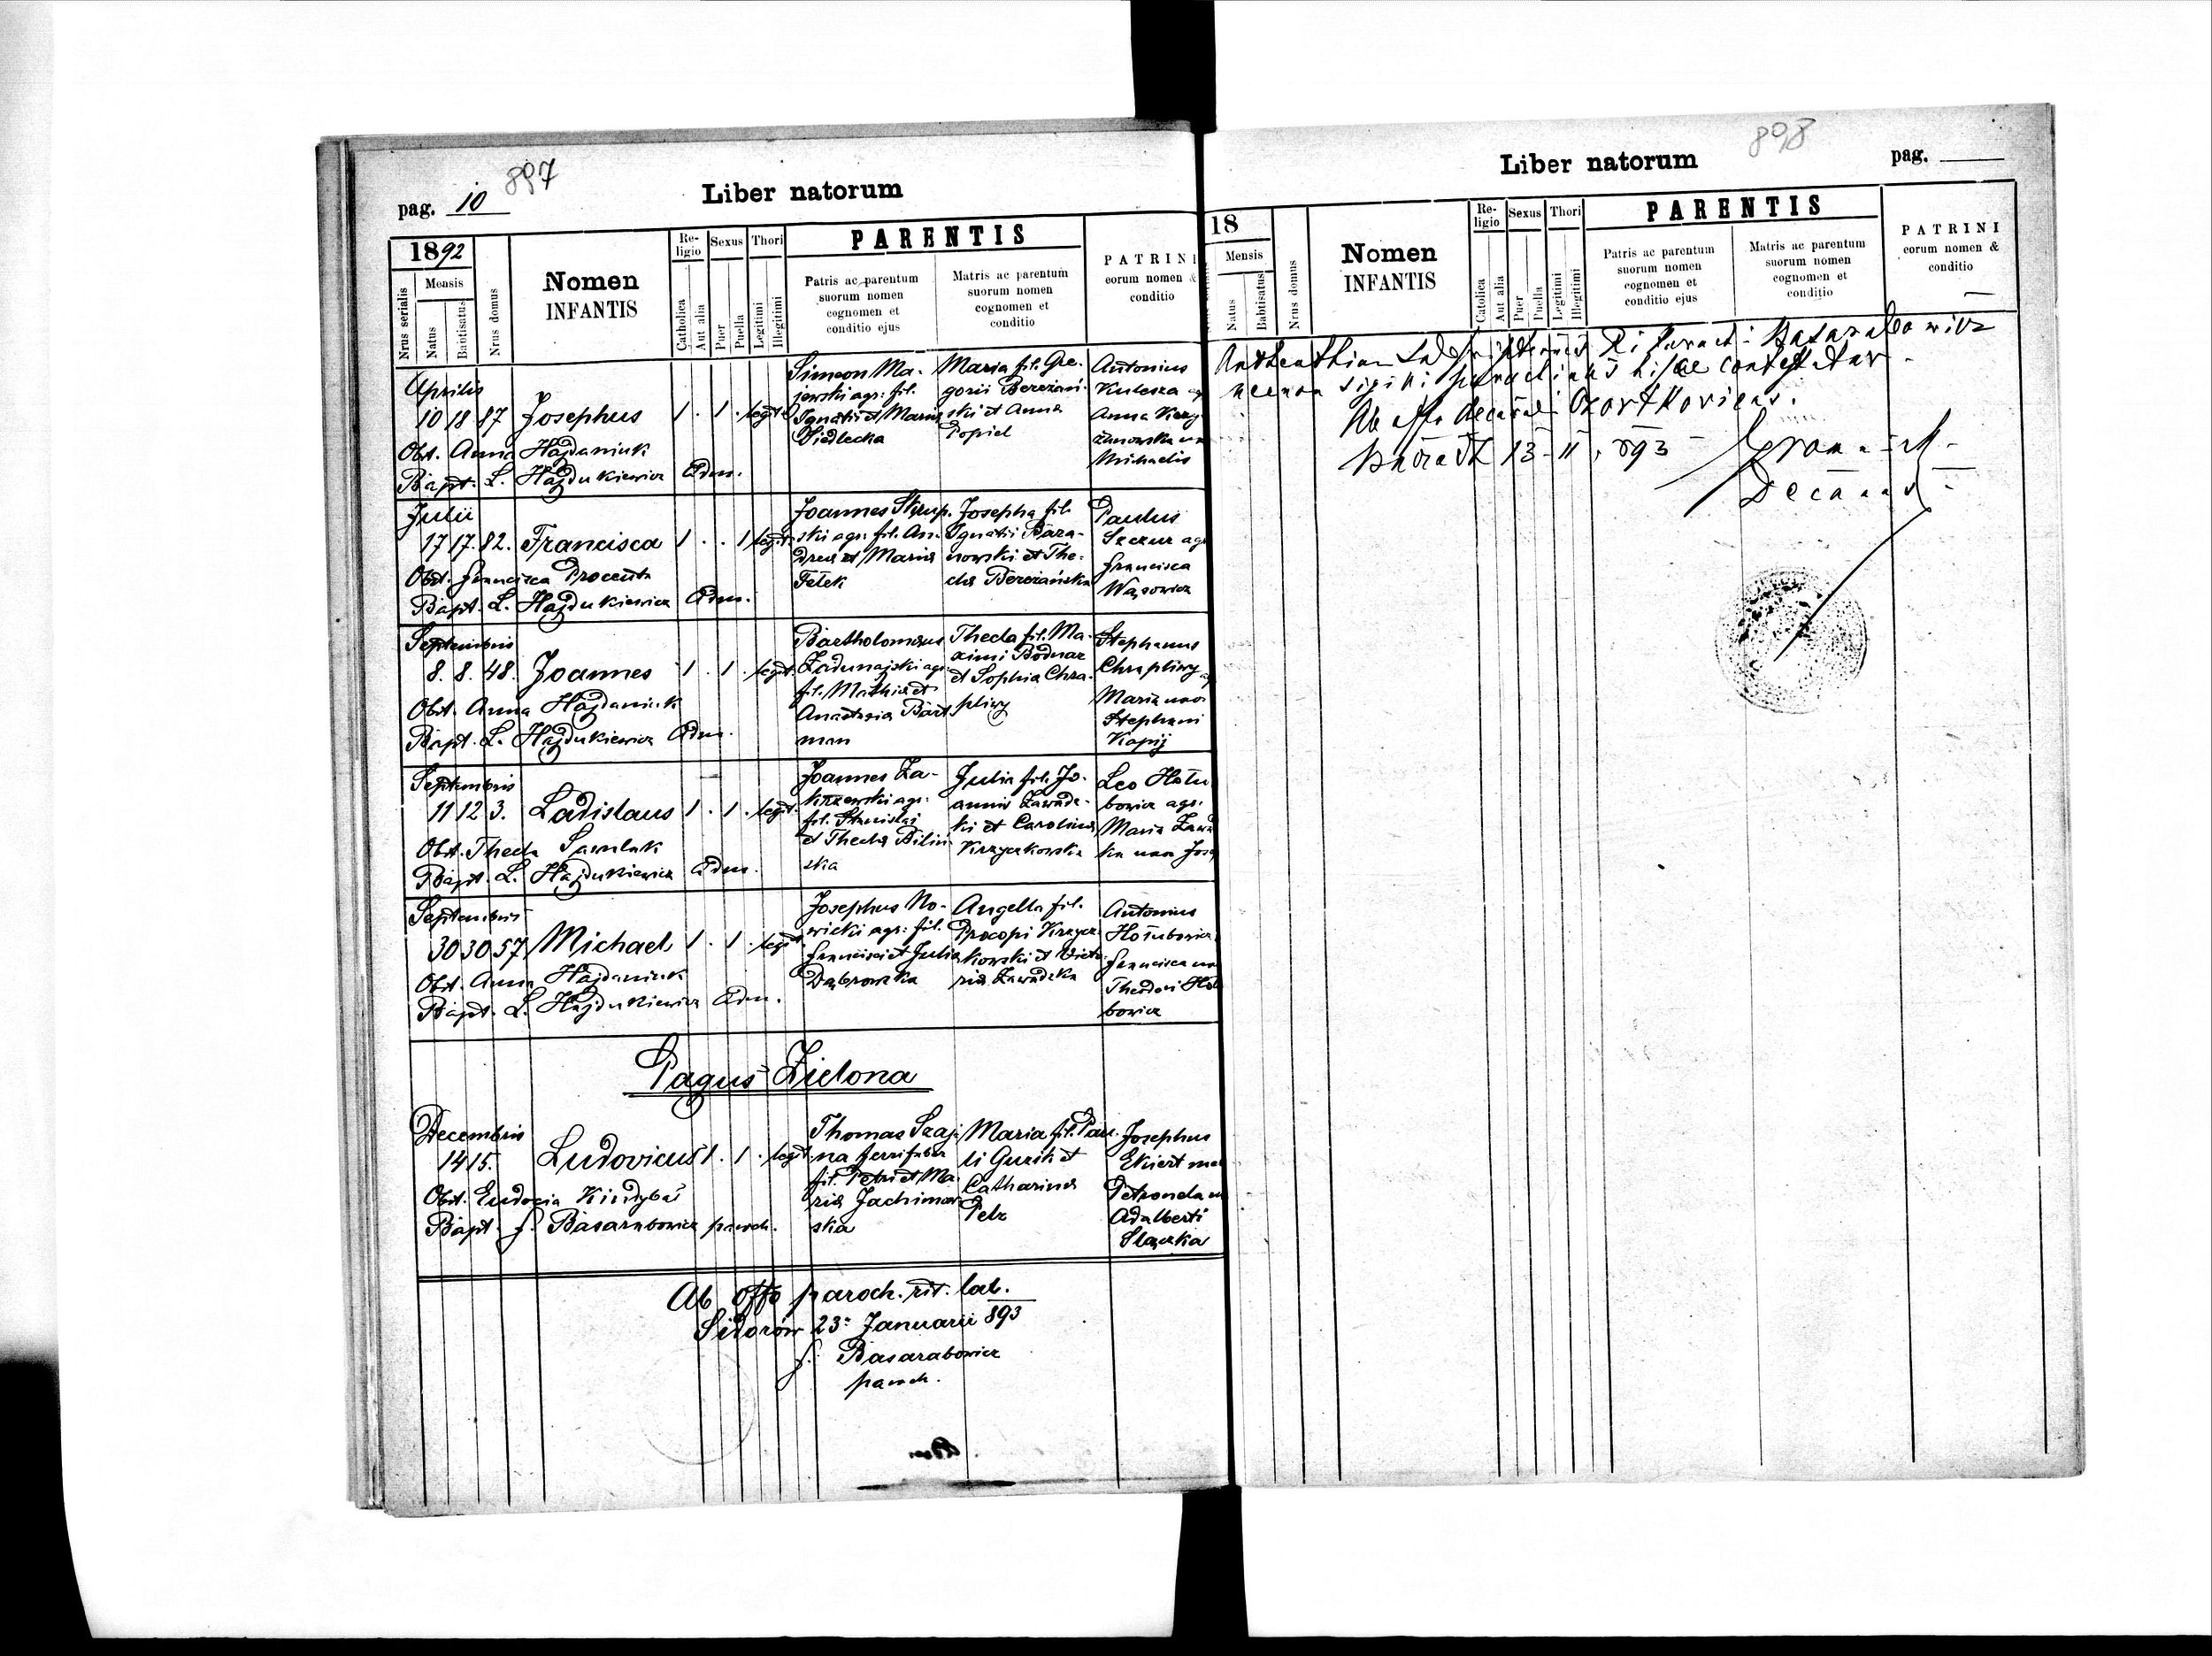 pag. 10 897
Liber natorum
1892
Nrus serialis
Mensis
Natus
Baptisatus
Nrus domus
Nomen
INFANTIS
Re-
ligio
Catholica
Aut alia
Sexus
Puer
Puella
Thori
Legitimi
Illegitimi
PARENTIS
Patris ac parentum
suorum nomen
cognomen et
conditio ejus
Matris ac parentum
suorum nomen
cognomen et
conditio
PATRINI
eorum nomen &
conditio
Aprilis
10 18 87 Josephus 1 . 1 . legit.
Obst. Anna Hajdaniuk
Bapt. L. Hajdukiewicz Adm.
Simeon Ma-
jewski agr. fil.
Ignatii et Maria
Siedlecka
Maria fil. Gre-
gorii Bereżań-
ski et Anna
Popiel
Antonius
Kulesza
Anna
Michaelis
Julii
17 17. 82. Francisca 1 . . 1 legit.
Obst. Francisca Procenta
Bapt. L. Hajdukiewicz Adm.
Joannes
ski agr. fil. An-
dreæ et Maria
Felek
Josepha fil.
Ignatii Bara-
nowski et The-
cla Bereżańska
Paulus
Szczur agr
Francisca
Wąsowicz
Septembris
8. 8. 48. Joannes 1 . 1 . legit.
Obst. Anna Hajdaniuk
Bapt. L. Hajdukiewicz Adm.
Bartholomæus
Zadunajski agr.
fil. Mathiæ et
Anastasia Bart
man
Thecla fil. Ma-
ximi Bodnar
et Sophia Chra-
pliwy
Stephanus
Chrapliwy
Maria uxor
Stephani
Kapij
Septembris
11 12 3. Ladislaus 1 . 1 . legit.
Obst. Thecla Sawulak
Bapt. L. Hajdukiewicz Adm.
Joannes Za-
krzewski agr.
fil. Stanislai
et Thecla Bilin
ska
Julia fil. Jo-
annis Zawadz-
ki et Carolina
Krzyczkowska
Leo Hołu
bowicz agr.
Maria Zawa
ka uxor Jose
Septembris
30 30 57 Michael 1 . 1 . legit.
Obst. Anna Hajdaniuk
Bapt. L. Hajdukiewicz Adm.
Josephus No-
wicki agr. fil.
Francisci et Julia
Dąbrowska
Angella fil.
Procopi Krzycz-
kowski et Victo-
ria Zawadzka
Antonius
Hołubowicz
Francisca uxor
Theodori Hołu
bowicz
Pagus Zielona
Decembris
14 15. Ludovicus 1 . 1 . legit.
Obst. Eudocia Kindybaś
Bapt. J. Basarabowicz paroch.
Thomas Szaj-
na ferrifaber
fil. Petri et Ma-
ria Jachimow
ska
Maria fil. Pau-
li Guzik et
Catharina
Pelz
Josephus
Ekiert
Petronela
Adalberti
Slączka
Ab offo paroch. rit. lat.
Sidorów 23. Januarii 893
J. Basarabowicz
paroch.
898
Liber natorum
pag.
18
Mensis
Natus
Babtisatus
Nrus domus
Nomen
INFANTIS
Re-
ligio
Catholica
Aut alia
Sexus
Puer
Puella
Thori
Legitimi
Illegitimi
PARENTIS
Patris ac parentum
suorum nomen
cognomen et
conditio ejus
Matris ac parentum
suorum nomen
cognomen et
conditio
PATRINI
eorum nomen &
conditio
Basarabowicz
necnon sigilli parochialis hisce contestatur
Ab offo decanali Czortkovien.
13 - 11 . 893
Decanus